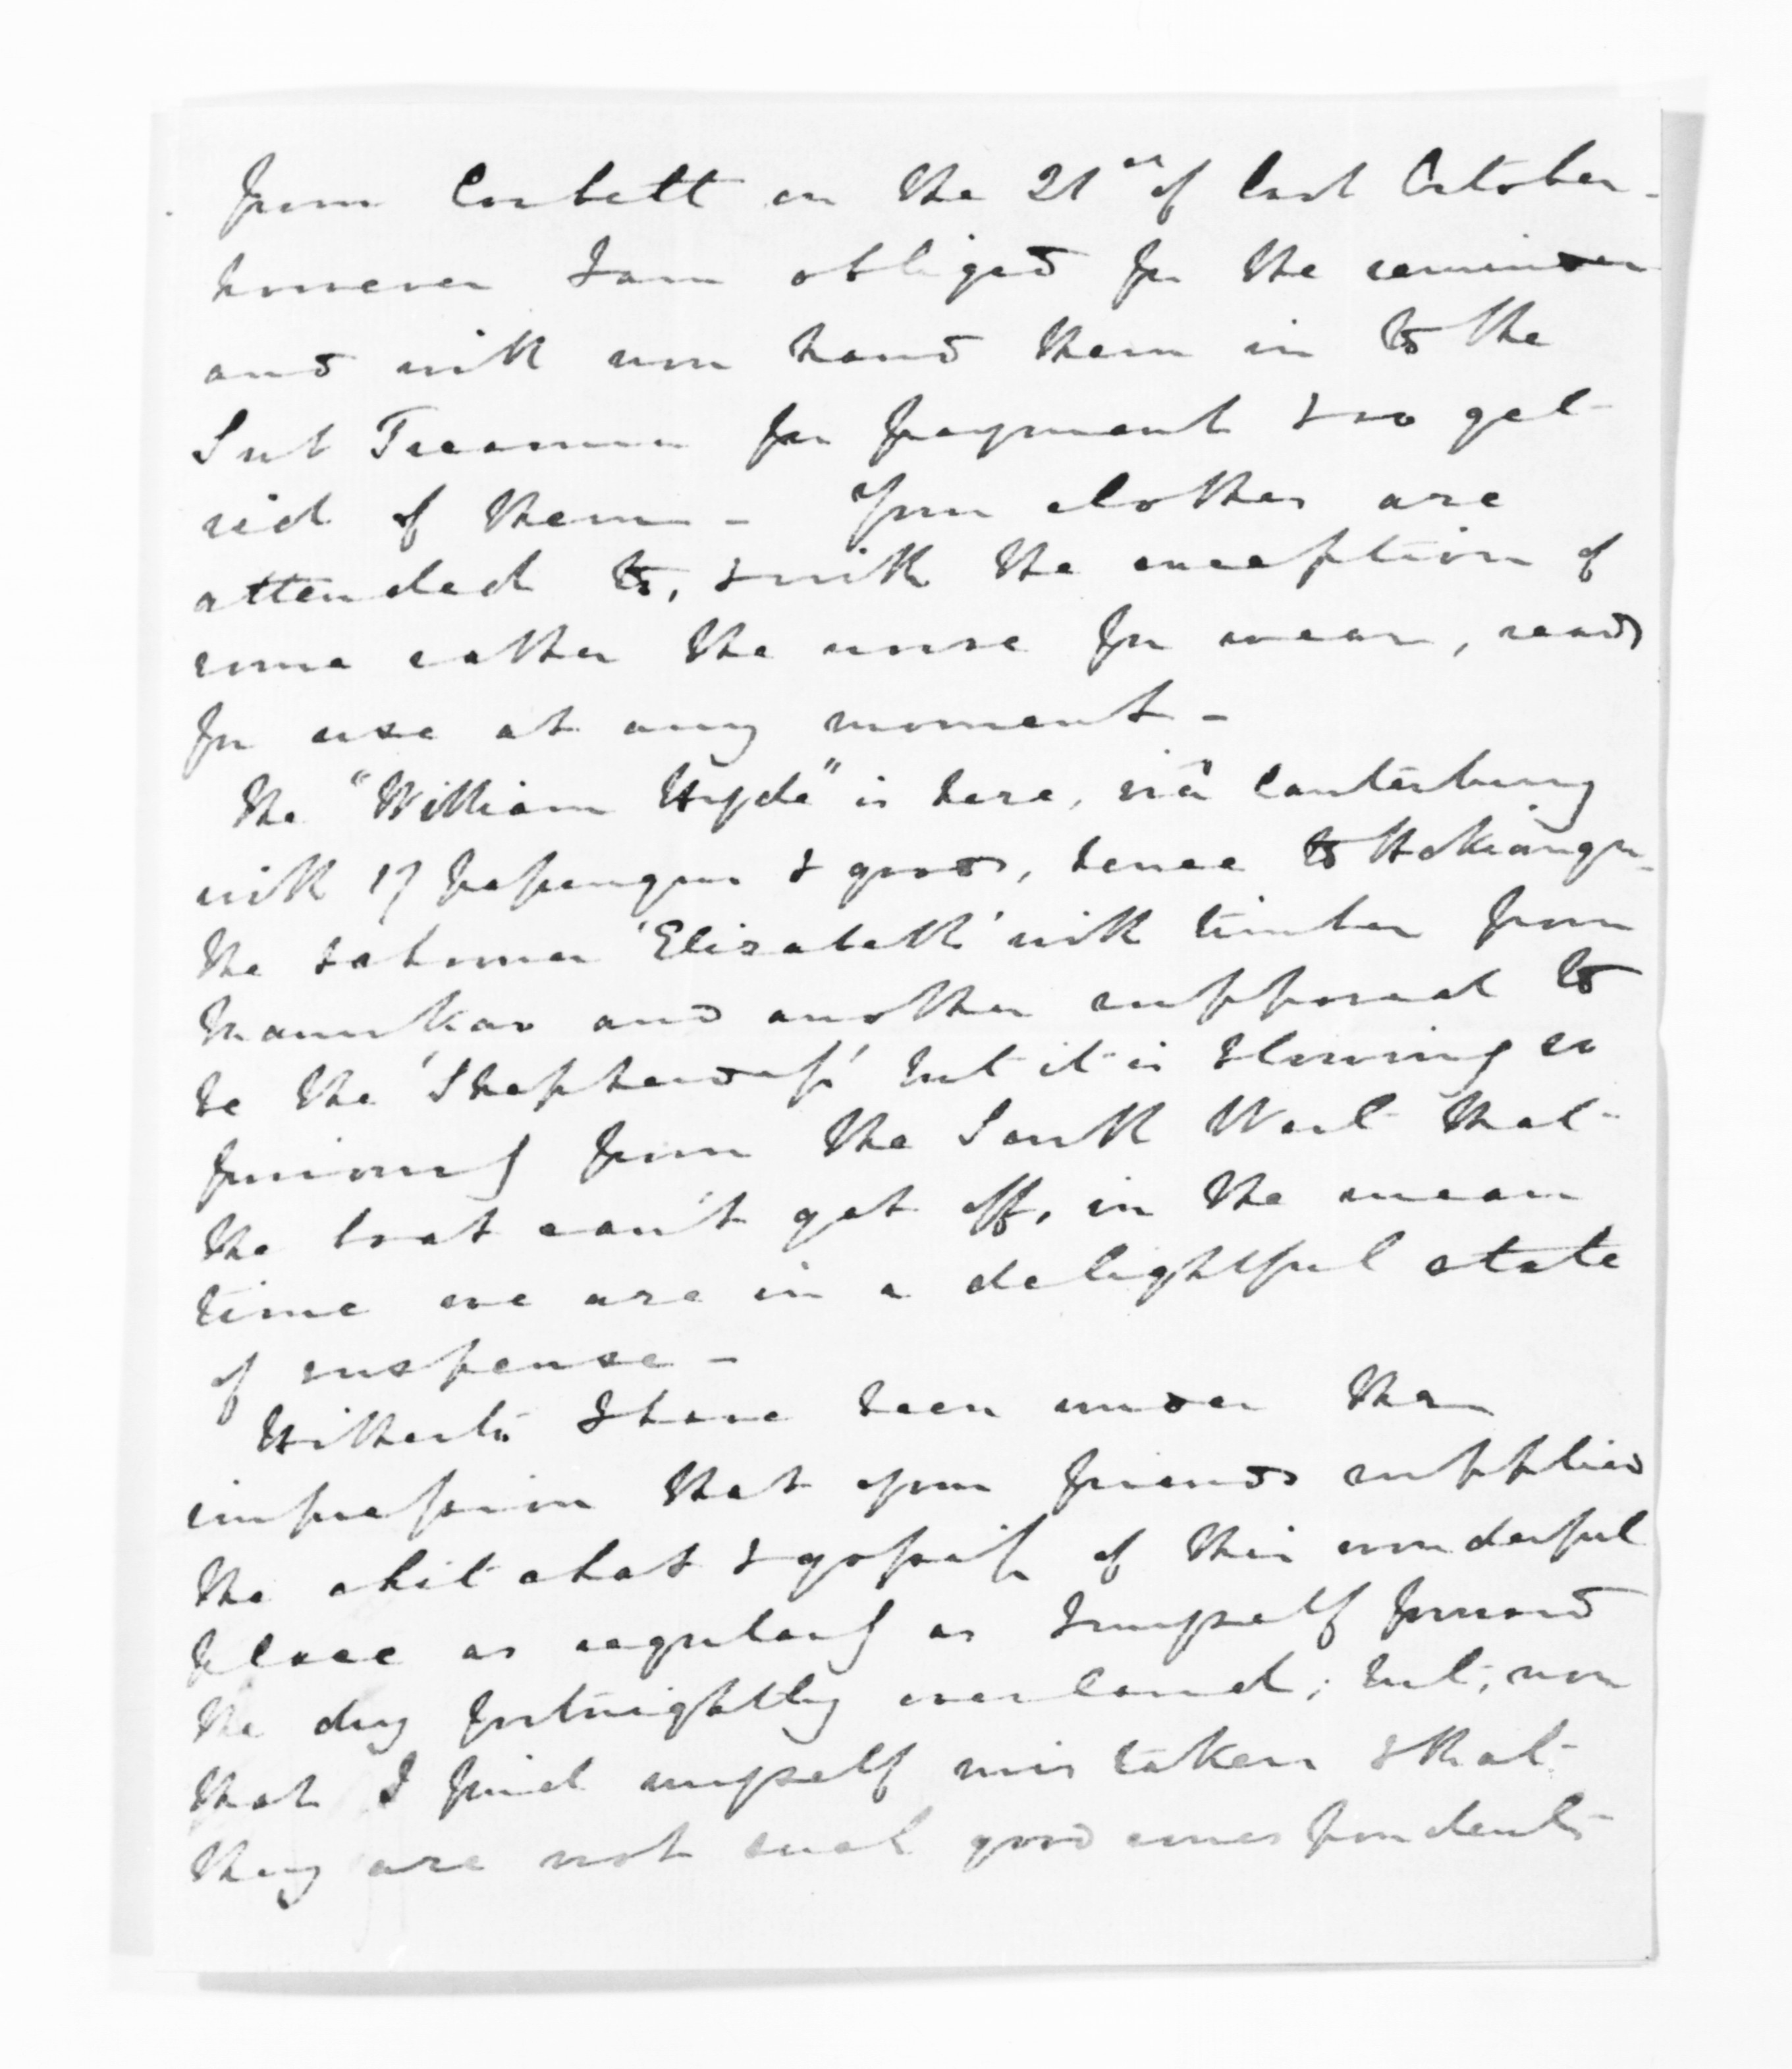 from Corbett on the 21st of last October -
however I am obliged for the reminder
and will now hand them in to the
Sub Treasurer for payment & so get
rid of them - Your clothes are
attended to, & with the exception of
some rather the worse for wear, ready
for use at any moment -
The "William Hyde" is here, viâ Canterbury
with 17 passengers & goods, hence to Hokianga -
the schooner 'Elizabeth' with timber from
Manukau and another supposed to
be the 'Shepherdess' but it is blowing so
furiously from the South West that
the boat can't get off, in the mean
time we are in a delightful state
of suspense -
Hitherto I have been under the
impression that your friends supplied
the chit chat & gossip of this wonderful
place as regularly as I myself forward
the dry fortnightly overland; but, now
that I find myself mistaken & that
they are not such good correspondents